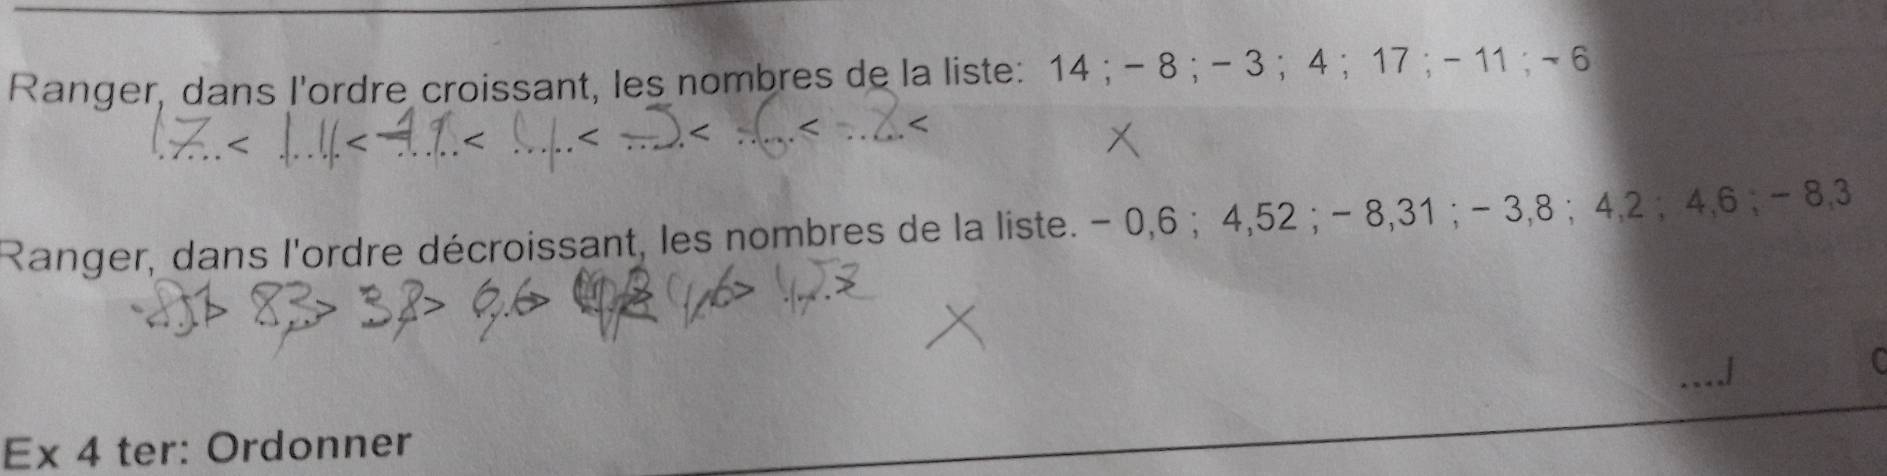 Ranger, dans l'ordre croissant, les nombres de la liste: 14 ; – 8 ; – 3 ; 4 ; 17 ; – 11 ; – 6
17 < 14 < -11 < 4 < -3 < -6 < -8 <
X
Ranger, dans l'ordre décroissant, les nombres de la liste. – 0,6 ; 4,52 ; – 8,31 ; – 3,8 ; 4,2 ; 4,6 ; – 8,3
> 8,3 > 3,8 > 0,6 > > 4,6 > 4,52
X
..../
Ex 4 ter: Ordonner